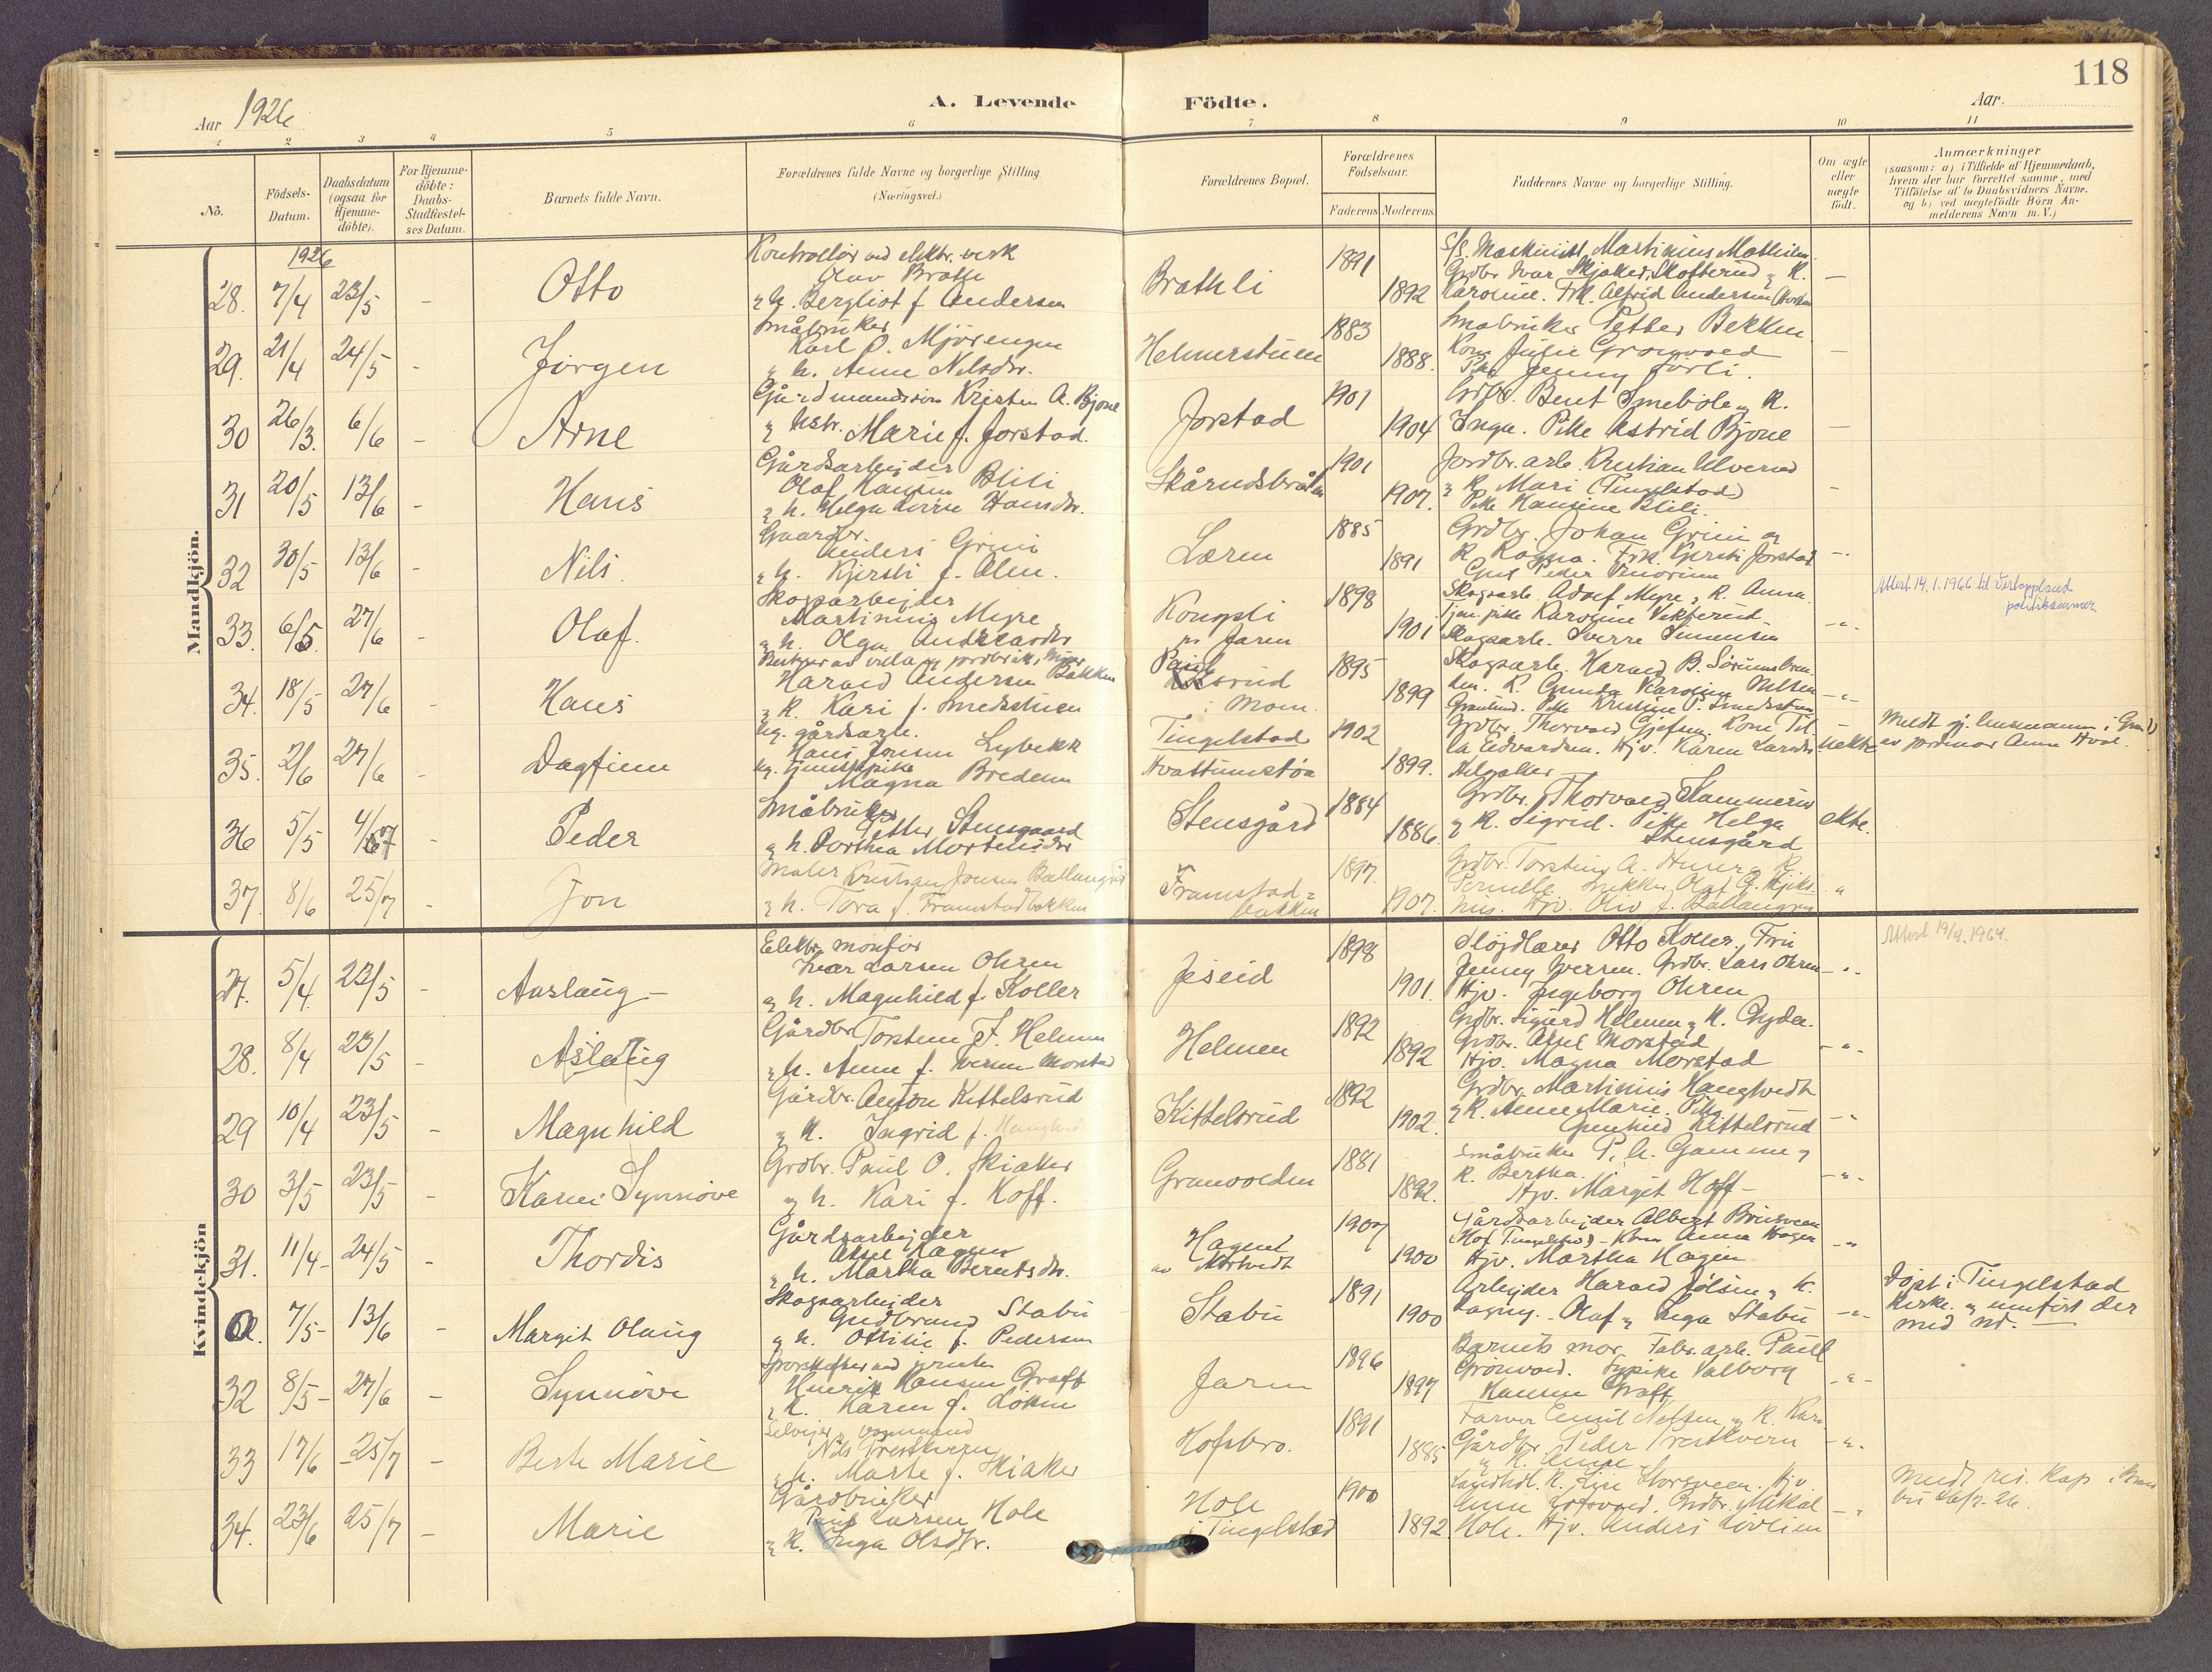 118
Aar 1926
A. Levende Födte.
Aar.
1 2 3 4 5 6 7 8 9 10 11
No.
Födsels-
Datum.
Daabsdatum
(ogsaa for
Hjemme-
döbte).
For Hjemme-
döbte:
Daabs-
Stadfæstel-
ses Datum.
Barnets fulde Navn.
Forældrenes fulde Navne og borgerlige Stilling
(Næringsvei.)
Forældrenes Bopæl.
Forældrenes
Födselsaar.
Faderens Moderens
Faddernes Navne og borgerlige Stilling.
Om ægte
eller
uægte
födt.
Anmærkninger
(saasom: a) i Tilfælde af Hjemmedaab,
hvem der har forrettet samme, med
Tilföielse af to Daabsvidners Navne.
og b) ved uægtefödte Börn An-
melderens Navn m. V.)
Mandkjön.
1926
28. 7/4 23/5 - Otto
Kontrollör ved elektr. verk
Olav Brathe
og h. Bergliot f Andersen
Brathli
1891
1892
S/s. Maskinist Martinius Mathisen
Grdbr Ivar Skjaker, Skofterud og K.
Karoline. Frk. Alfrid Andersen
29. 21/4 24/5 - Jörgen
Småbruker
Karl O. Mjörengen
og h. Anne Nilsdtr.
Helmerstuen
1883
1888.
Småbruker Petter Bekken
Kone Julie Grönvold
Jenny
30 26/3. 6/6 - Arne
Gårdmandssön Kristen A. Bjone
og hstr. Marie f. Jorstad.
Jorstad
1901
1904
Grdbr. Bent Smeböle og K.
Inga. Pike Astrid Bjone
31 20/5 13/6 - Hans
Gårdsarbeider
Olaf Hansen Blili
og h. Helga Hansdtr.
1901
1907.
Jordbr. arb. Kristian Ulverud
og K. Mari (Tingelstad)
Pike Hansine Blili.
32 30/5 13/6 - Nils.
Gaardbr.
Anders Grini
og h. Kjersti f. Alm.
Laren
1885
1891
Grdbr. Johan Grini og
K. Ragna. Frk. Kjersti Jorstad
33. 6/5 27/6 - Olaf.
Skogsarbeider
Martinius Myre
og h. Olga Andreasdtr
Kongsli
pr Jaren
1898
1901
Skogsarb. Adolf Myre og K. Anna.
Tjen. pike Karoline
Skogsarb. Sverre Simensen
Attest 14.1.1966 til Vestoppland
politikammer.
34. 18/5 27/6 - Hans
Harald Andersen Bakken
og K. Kari f. Smedstuen
i Moen.
1895
1899
Skogsarb. Harald B.
K. Gunda Karoline Nilsen
Granlund. Pike Kristine P. Smedstuen
35. 2/6 27/6 - Dagfinn
Ug. gårdsarb.
Hans Jonsen Lybekk
ug. tjenestepike
Magna Breden
Tingelstad
Hvattumstöa
1902
1899.
Grdbr. Thorvald Gjefsen. Kone
Edvardsen. Hjv. Karen Larsdtr
Helgaker
Uekte
Meldt gj. lensmannen i Gran
av jordmor Anna Hval.
36 5/5 4/7 - Peder
Småbruker
Petter Stensgaard
og h. Dorthea Mortensdtr
Stensgård
1884
1886.
Grdbr. Thorvald
og K. Sigrid. Pike Helga
Stensgård
ekte.
37. 8/6 25/7 - Jon
Maler Kristian Jonsen Ballangrud
og h. Tora f. Framstadbakken
Framstad-
bakken
1897.
1907.
Grdbr. Torstein A.
Pernille. Snekker Olaf
Hjv. Oliv f. Ballangrud
Kvindekjön
27. 5/4 23/5 - Aaslaug -
Elektr. montör
Ivar Larsen Ohren
og h. Magnhild f. Koller
Jeseid
1898
1901.
Slöjdlærer Otto Koller, Fru
Jenny Iversen. Grdbr. Lars Ohren
Hjv. Ingeborg Ohren
Attest 19/4.1964.
28. 8/4 23/5 - Aslaug
Gårdbr Torstein T. Helmen
og h. Anne f. Iversen Morstad
Helmen
1892
1892
Grdbr. Sigurd Helmen og K. Gyda.
Grdbr. Aksel Morstad
Hjv. Magna Morstad
29 10/4 23/5 - Magnhild
Gårdbr. Anton Kittelsrud
og K. Ingrid f.
Kittelsrud
1892
1902.
Grdbr. Martinius Haugtvedt
og K. Anne Marie. Pike
Kittelsrud
30 3/5 23/5 - Karen Synnöve
Grdbr. Paul O. Skiaker
og h. Kari f. Hoff.
Granvolden
1881
1892.
Småbruker P. A. Gamme og
K. Bertha.
Hjv. Margit Hoff -
31. 11/4 - 24/5 - Thordis
Gårdsarbeider
Aksel Hagen
og h. Martha Berntsdtr.
Hagen
1907
1900
Gårdsarbeider Albert Brusveen
(Hof Tingelstad) - Kone Anna Hagen
Hjv. Martha Hagen
7/5 - 13/6 - Margit Olaug
Skogsarbeider
Gudbrand Stabu
og h. Ottilie f. Pedersen
Stabu
1891
1900
Arbeider Harald Jölsen og K.
Dagny. Olaf og Inga Stabu
Döpt i Tingelstad
kirke. og innfört der
med nr.
32 8/5 - 27/6 - Synnöve
Henrik Hansen Graff
og K. Karen f. Löken
Jaren
1896
1897
Barnets mor. Fabr. arb. Paul
Grönvold. Sypike Valborg
Hansen Graff
33 17/6 - 25/7 - Berte Marie
Selveier og
Nils Prestkvern
og h. Marte f. Skiaker
Hofsbro.
1891
1885
Farver Emil Nilsen og K. Kari.
Gårdbr. Peder Prestkvern
og K. Anne
34. 23/6 25/7 - Marie
Gårdbruker
Paul Larsen Hole
og K. Inga Olsdtr.
Hole
i Tingelstad
1900
1892
Landhdl. K. Lise Storsveen. Hjv.
Anne. Grdbr. Mikal
Hole. Hjv. Anders Lövlien
Meldt res. kap.